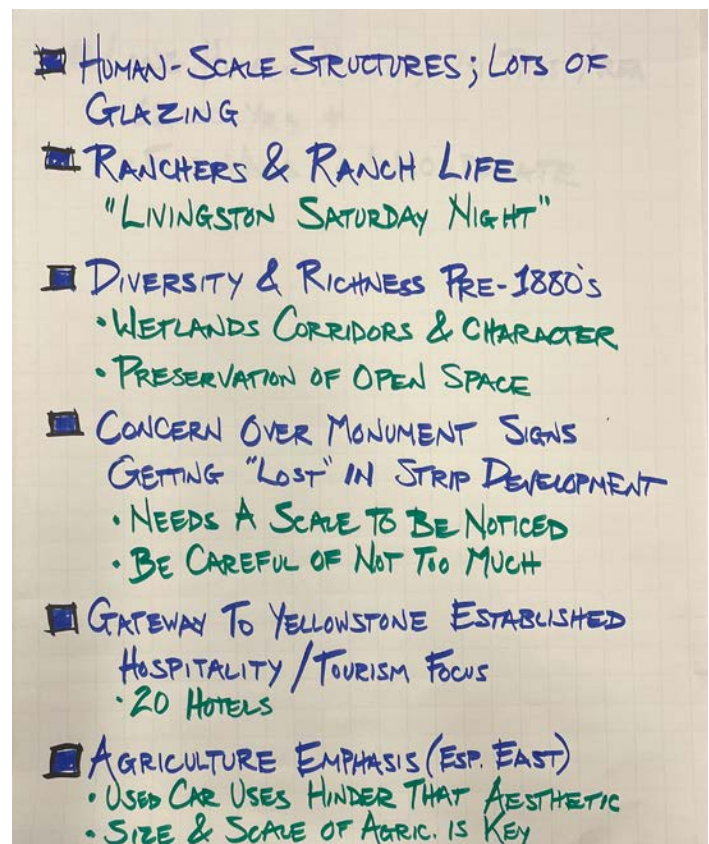 HUMAN-SCALE STRUCTURES; LOTS OF
GLAZING
RANCHERS & RANCH LIFE
"LIVINGSTON SATURDAY NIGHT"
DIVERSITY & RICHNESS PRE-1880's
• WETLANDS CORRIDORS & CHARACTER
• PRESERVATION OF OPEN SPACE
CONCERN OVER MONUMENT SIGNS
GETTING "LOST" IN STRIP DEVELOPMENT
• NEEDS A SCALE TO BE NOTICED
• BE CAREFUL OF NOT TOO MUCH
GATEWAY TO YELLOWSTONE ESTABLISHED
HOSPITALITY/TOURISM FOCUS
• 20 HOTELS
AGRICULTURE EMPHASIS (ESP. EAST)
• USED CAR USES HINDER THAT AESTHETIC
• SIZE & SCALE OF AGRIC. IS KEY